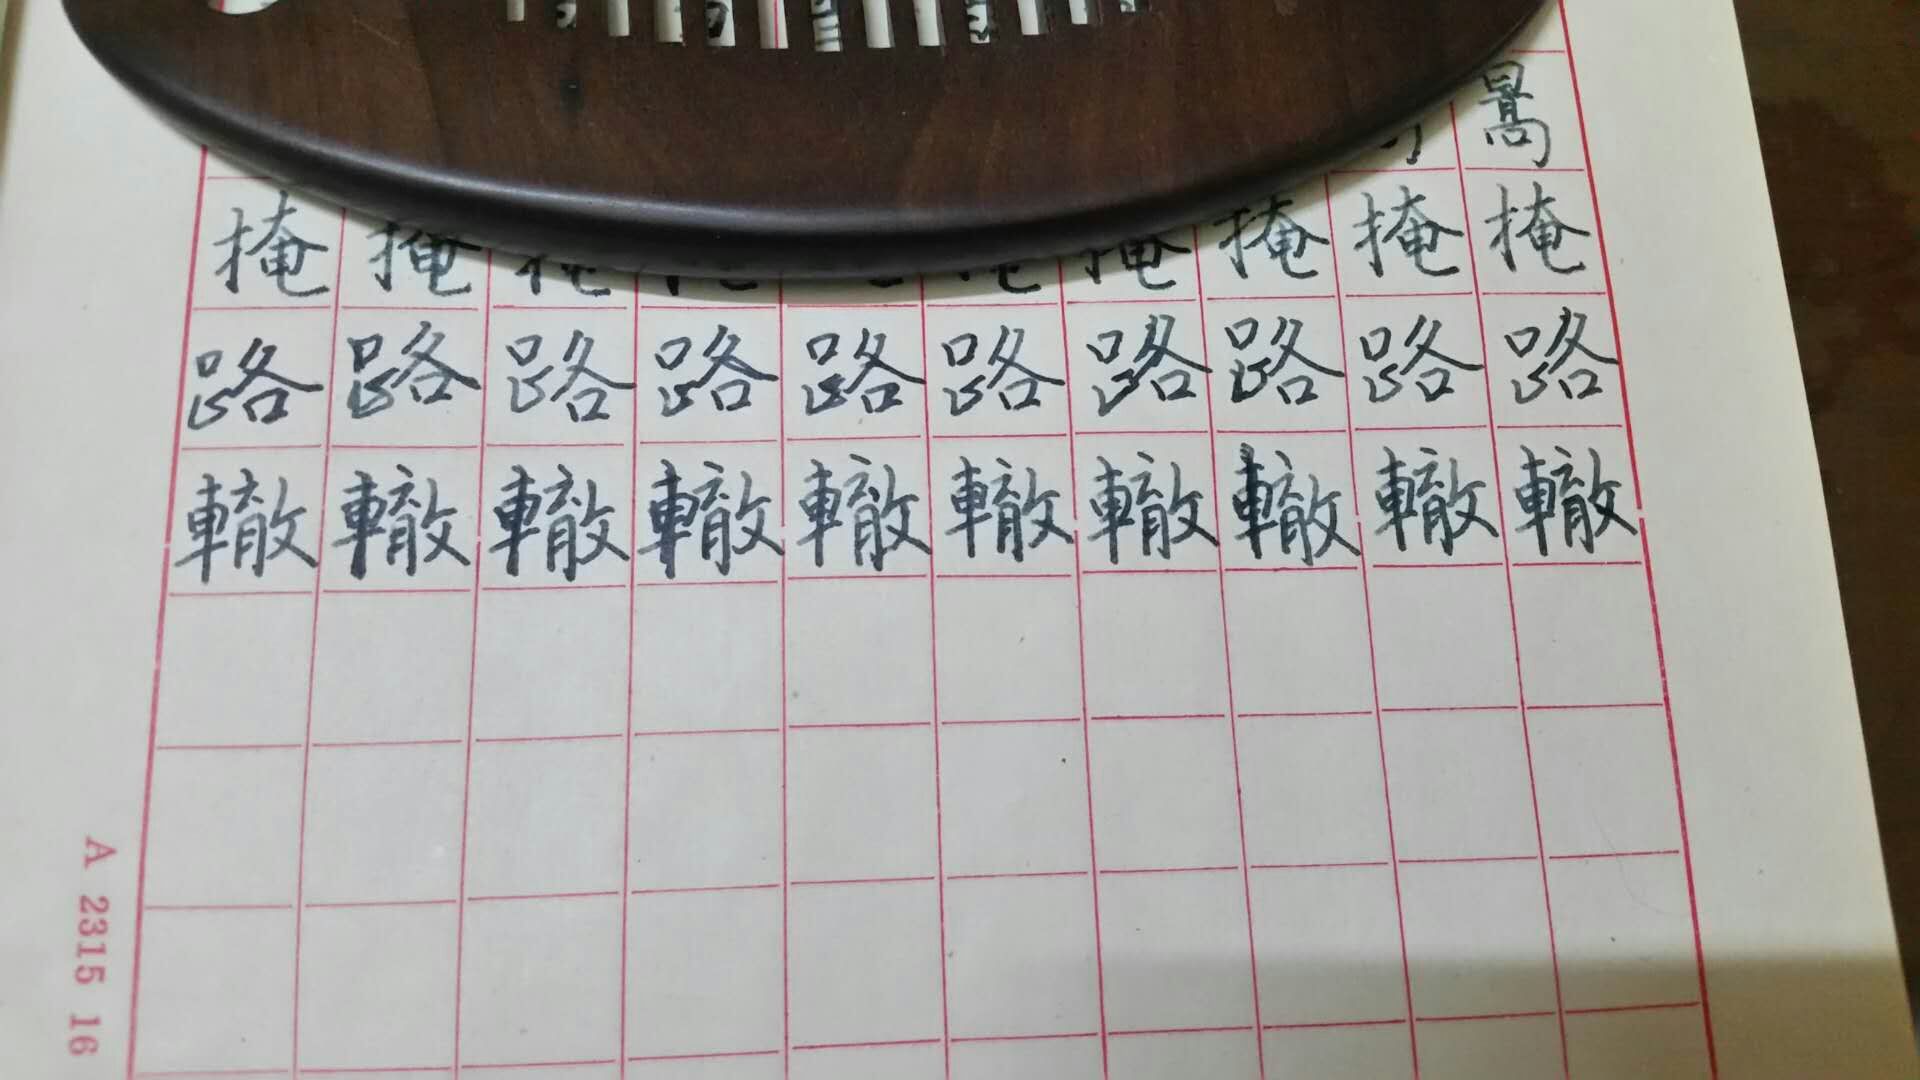 暠
掩 掩 掩 掩 掩 掩
路 路 路 路 路 路 路 路 路 路
轍 轍 轍 轍 轍 轍 轍 轍 轍 轍
A 2315 16